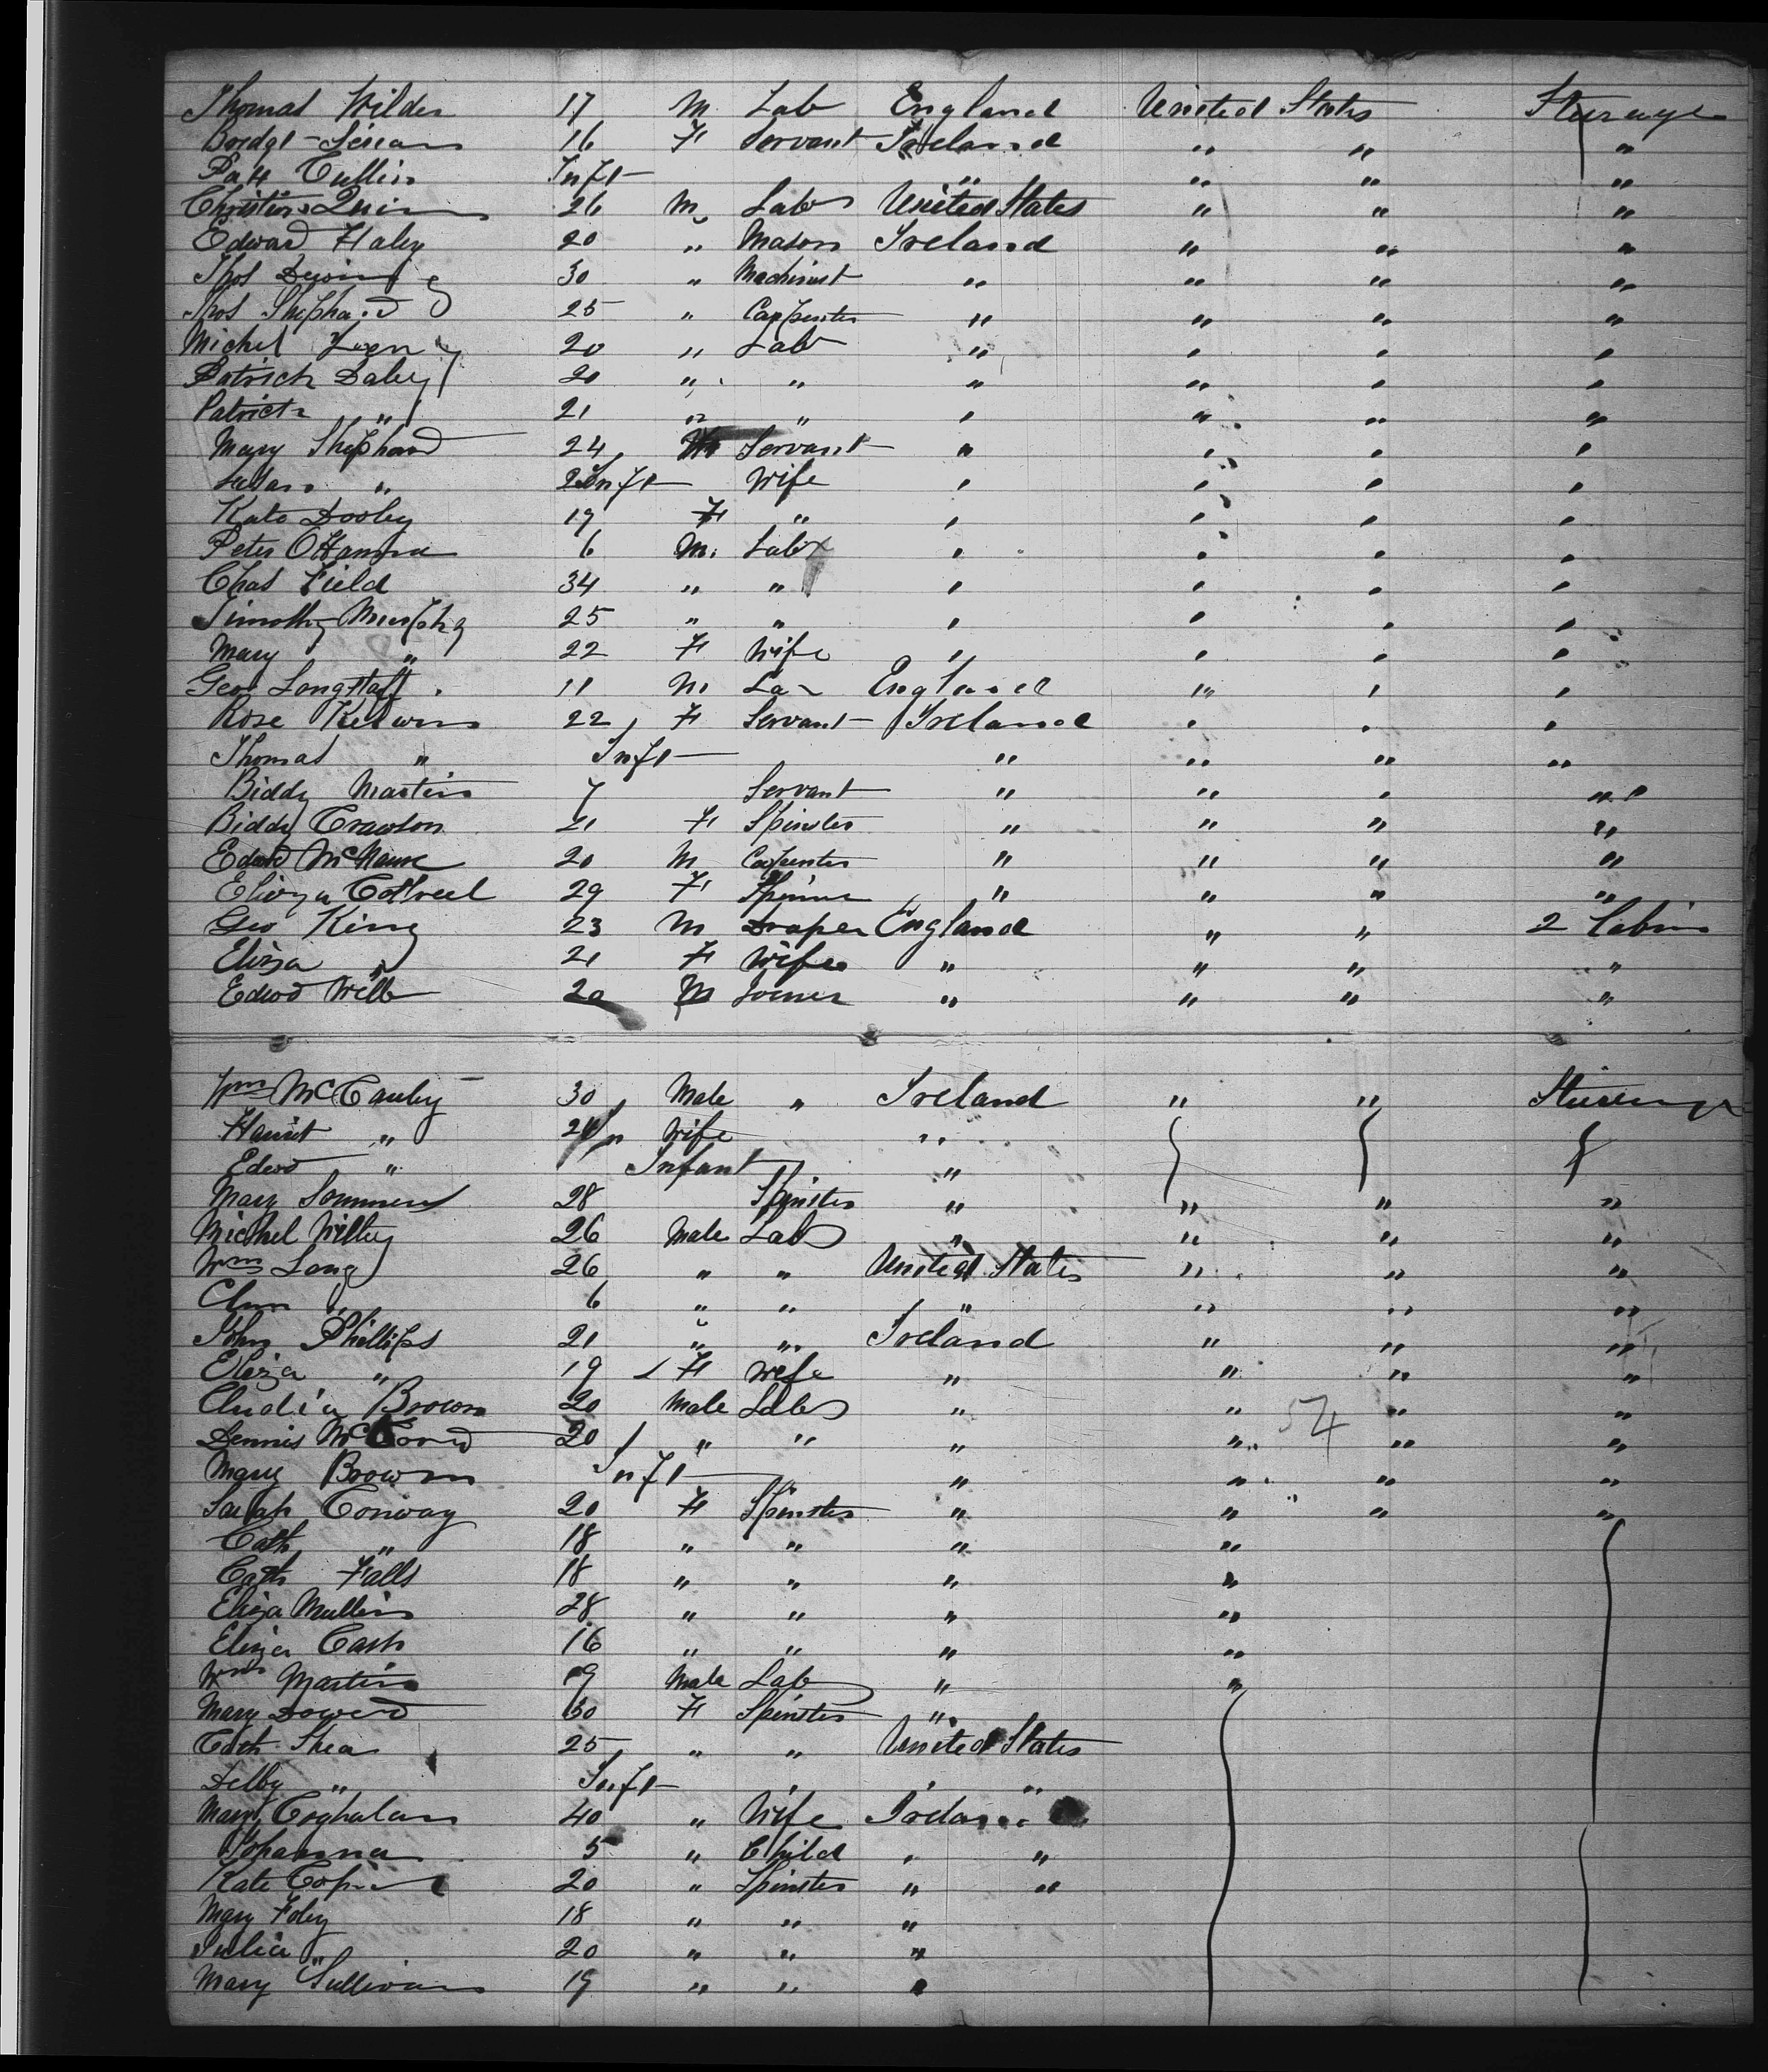 Thomas Wilder 17 M Lab England United States Steerage
Bridgt 16 F Servant Ireland " " "
Patk Cullin Inft " " " "
Quinn 26 M Labr United States " " "
Edward Haley 20 " Mason Ireland " " "
Thos 30 " Machinist " " " "
Thos Shephard 25 " Carpenter " " " "
Michel 20 " Lab " " " "
Patrick Daley 20 " " " " " "
Patrick " 21 " " " " " "
Mary Shephard 24 Servant " " " "
" Inft Wife " " " "
Kate Dooley 19 F " " " " "
Peter OHanna 6 M. Labr " " " "
Chas Field 34 " " " " " "
Timothy Murphy 25 " " " " " "
Mary " 22 F Wife " " " "
Geo Longstaff 11 M La England " " "
Rose Kerwin 22 F Servant Ireland " " "
Thomas " Inft " " " "
Biddy Martin 7 Servant " " " "
Biddy Crawton 21 F Spinster " " " "
Edwd 20 M Carpenter " " " "
Eliza Cottrell 29 F " " " "
Geo King 23 M Draper England " " 2 Cabin
Eliza " 21 F Wife " " " "
Edwd Webb 20 M Joiner " " " "
Wm McCauley 30 Male " Ireland " " Steerage
Harriet " Wife "
Edwd " Infant "
Mary Sommers 28 Spinster " " " "
Michel Wiltey 26 Male Lab " " " "
Wm Long 26 " " United States " " "
Ann " 6 " " " " " "
John Phillips 21 " " Ireland " " "
Eliza " 19 F Wife " " " "
Brown 20 Male Labr " " " "
54
Dennis 20 " " " " " "
Mary Brown Inft " " " "
Sarah Conway 20 F Spinster " " " "
Cath " 18 " " " "
Cath Falls 18 " " " "
Eliza Mullin 28 " " " "
Eliza Cash 16 " " " "
Wm Martin 9 Male Lab " "
Mary Dowd 30 F Spinster "
Cath Shea 25 " " United States
" Inft " " "
Mary Coghalan 40 " Wife Ireland
Johanna 5 " Child " "
Kate 20 " Spinster " "
Mary Foley 18 " " "
Julia " 20 " " "
Mary Sullivan 19 " " "